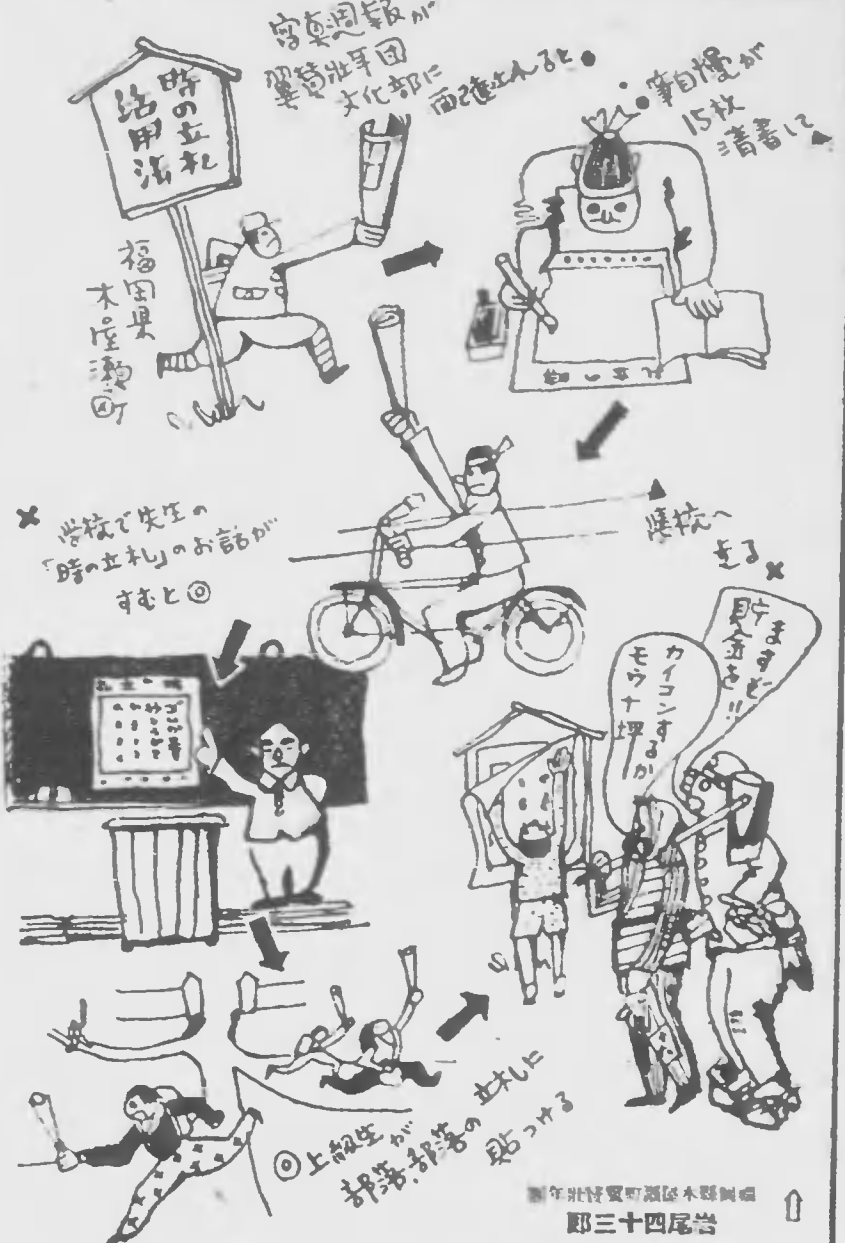 時の立札
活用法
福岡県
木屋瀬町
写真週報が
翼賛壮年団
文化部に
配達されると●
●筆自慢が
15枚
清書して▲
▲学校へ
走る×
×学校で先生の
「時の立札」のお話が
すむと◎
◎上級生が
部落、部落の立札に
貼つける
カイコンするか
モウ十坪
ますぞ
貯金を!!
福岡縣木屋瀬町翼賛壯年團
岩尾四十三郎